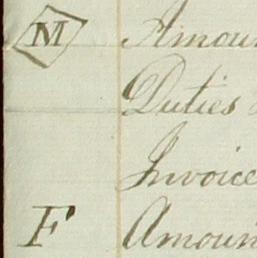 M Amoun
Duties
Invoice
F Amoun